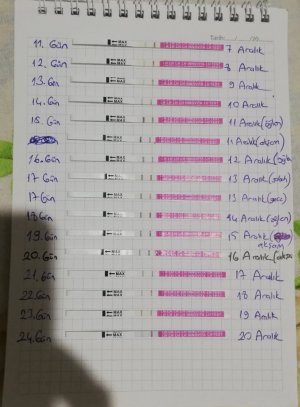 Tarih: / /
11. Gün MAX 7 Aralık
12. Gün MAX 8 Aralık
13. Gün MAX 9 Aralık
14. Gün MAX 10 Aralık
15. Gün MAX 11 Aralık (öğlen)
MAX 11 Aralık (akşam)
16. Gün MAX 12 Aralık (öğle
17 Gün MAX 13 Aralık (sabah)
17 Gün MAX 13 Aralık (gece)
18 Gün MAX 14 Aralık (öğlen)
19. Gün MAX 15 Aralık
akşam
20. Gün MAX 16 Aralık (akşam
21. Gün MAX 17 Aralık
22. Gün MAX 18 Aralık
23. Gün MAX 19 Aralık
24. Gün MAX 20 Aralık